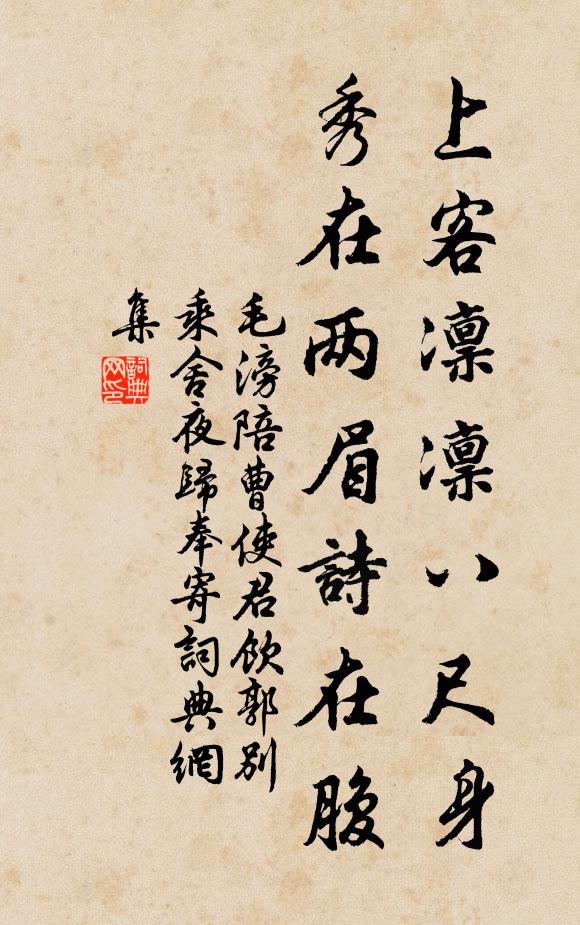 上客凛凛八尺身
秀在两眉詩在腹
毛滂陪曹使君飲郭別
乘舍夜歸奉寄詞典網
集
詞典
网印